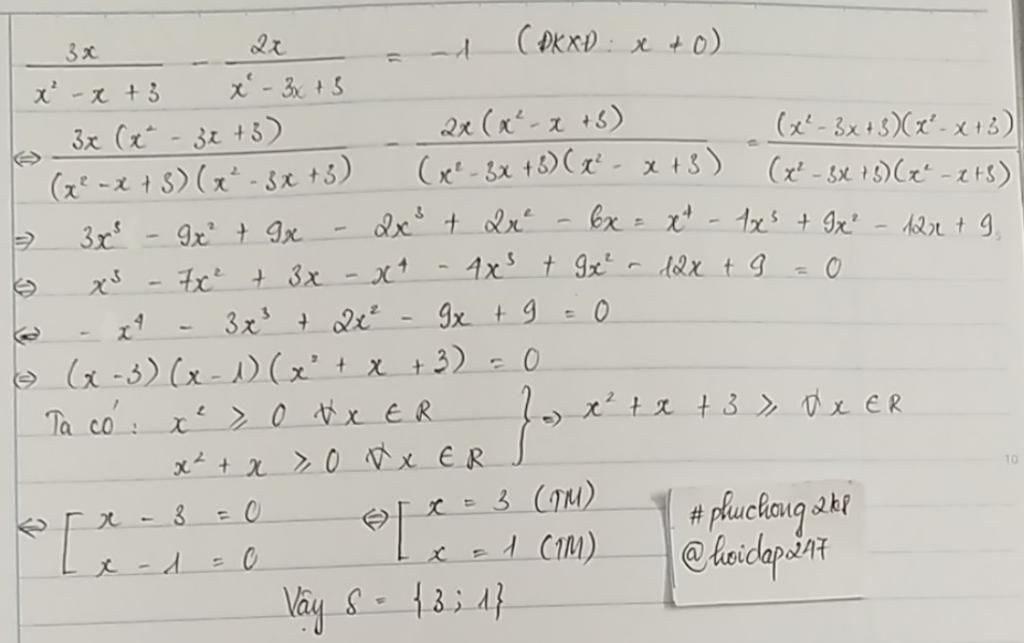 3x/(x² - x + 3) - 2x/(x² - 3x + 3) = -1 (ĐKXĐ: x ≠ 0)
⇔ 3x(x² - 3x + 3)/((x² - x + 3)(x² - 3x + 3)) - 2x(x² - x + 3)/((x² - 3x + 3)(x² - x + 3)) = (x² - 3x + 3)(x² - x + 3)/((x² - 3x + 3)(x² - x + 3))
⇒ 3x³ - 9x² + 9x - 2x³ + 2x² - 6x = x⁴ - 4x³ + 9x² - 12x + 9
⇔ x³ - 7x² + 3x - x⁴ - 4x³ + 9x² - 12x + 9 = 0
⇔ - x⁴ - 3x³ + 2x² - 9x + 9 = 0
⇔ (x - 3)(x - 1)(x² + x + 3) = 0
Ta có: x² ≥ 0 ∀x ∈ R
x² + x ≥ 0 ∀x ∈ R } ⇒ x² + x + 3 ≥ ∀x ∈ R
⇔ [ x - 3 = 0 ⇔ [ x = 3 (TM)
x - 1 = 0 x = 1 (TM)
Vậy S = {3; 1}
#phuchong2k8
@hoidap247
10